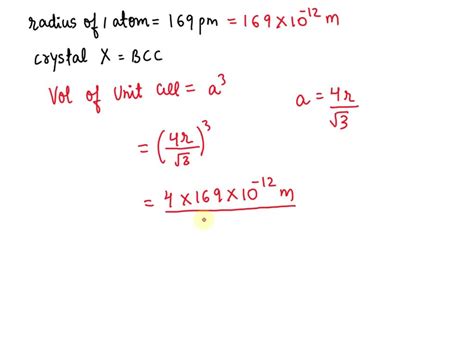 radius of 1 atom = 169 pm = 169 × 10⁻¹² m
crystal X = BCC
Vol of Unit Cell = a³
a = 4r/√3
= (4r/√3)³
= 4 × 169 × 10⁻¹² m